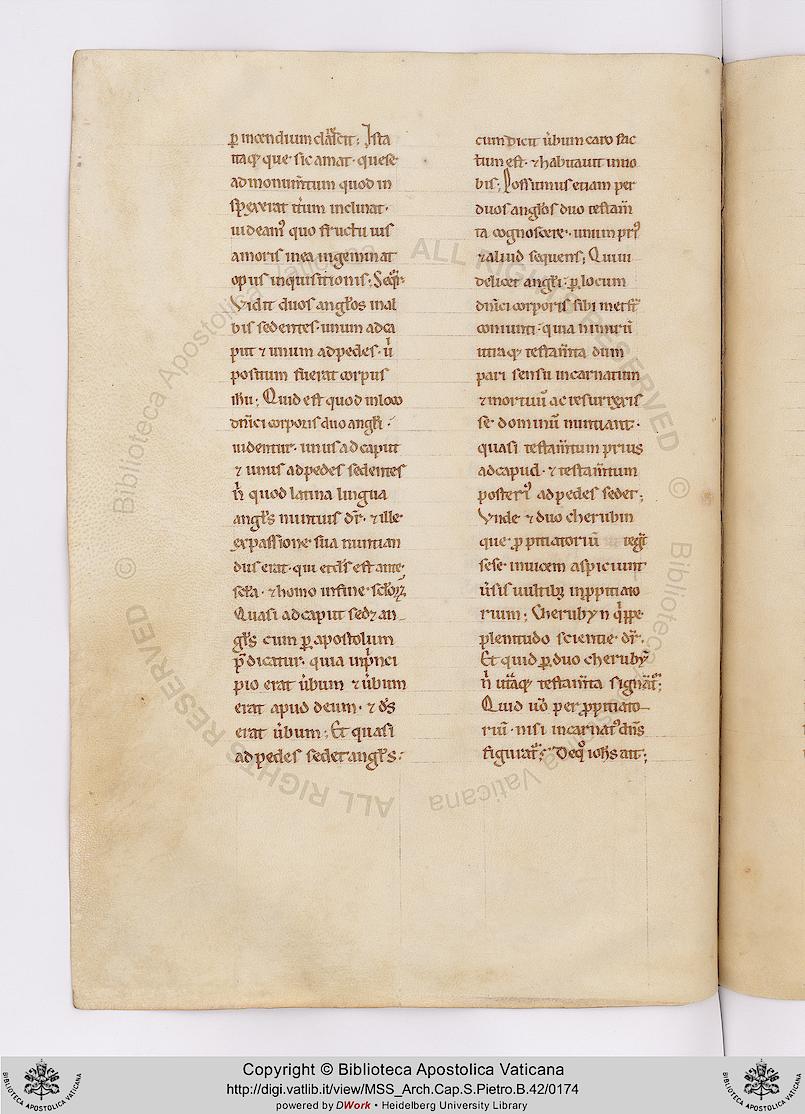 ꝑ incendium claʀ̃cit: Ista
itaq; que sic amat· q̃ se se
ad monum̃tum quod in
spexerat it̃um inclinat·
uideam᷒ quo fructu uis
amoris in ea ingeminat
opus inquisitionis; Seqͥr·
Vidit duos angl̃os in al
bis sedentes· unum ad ca
put ⁊ unum ad pedes· uͥ
positum fuerat corpus
ihu; Quid est quod in loco
dñici corporis duo angl̃i ·
uidentur· unus ad caput
⁊ unus ad pedes sedentes
ñ quod latina lingua
angl̃s nuntius dr̃· ⁊ ille
ex passione sua nuntian
dus erat· qui et ds̃ est ante
sc̃la· ⁊ homo in fine sc̃loꝝ·
Quasi ad caput sedꝫ an
gl̃s cum ꝑ apostolum
p̃dicatur· quia in pͥnci
pio erat ũbum ⁊ ũbum
erat apud deum· ⁊ ds̃
erat ũbum; Et quasi
ad pedes sedet angl̃s·
cum dicit ũbum caro fac
tum est· ⁊ habitauit in no
bis; Possumus etiam per
duos angl̃os duo testam̃
ta cognoscere· unum pri᷒
⁊ aliud sequens; Qui ui
delicet angl̃i· ꝑ locum
dñici corporis sibi met st̃
coniuncti· quia nimirũ
utraq; testam̃ta dum
pari sensu incarnatum
⁊ mortuũ ac resurrexis
se dominũ nuntiant·
quasi testam̃tum prius
ad capud· ⁊ testam̃tum
posteri᷒ ad pedes sedet;
Vnde ⁊ duo cherubin
que ꝓpitiatoriũ tegũt
sese inuicem aspiciunt
ũsis uultibꝫ in ꝓpitiato
rium; Cherubyn qͥppe·
plenitudo scientie· dr̃·
Et quid ꝑ duo cheruby᷒
ñ utraq; testam̃ta signãt᷒;
Quid uͦ per ꝓpitiato
riũ· nisi incarnat᷒ dñs
figurat᷒; De qͦ ioh̃s ait;
Copyright © Biblioteca Apostolica Vaticana
http://digi.vatlib.it/view/MSS_Arch.Cap.S.Pietro.B.42/0174
powered by DWork • Heidelberg University Library
© Biblioteca Apostolica Vaticana ALL RIGHTS RESERVED
© Biblioteca Apostolica Vaticana ALL RIGHTS RESERVED
BIBLIOTECA APOSTOLICA VATICANA
BIBLIOTECA APOSTOLICA VATICANA